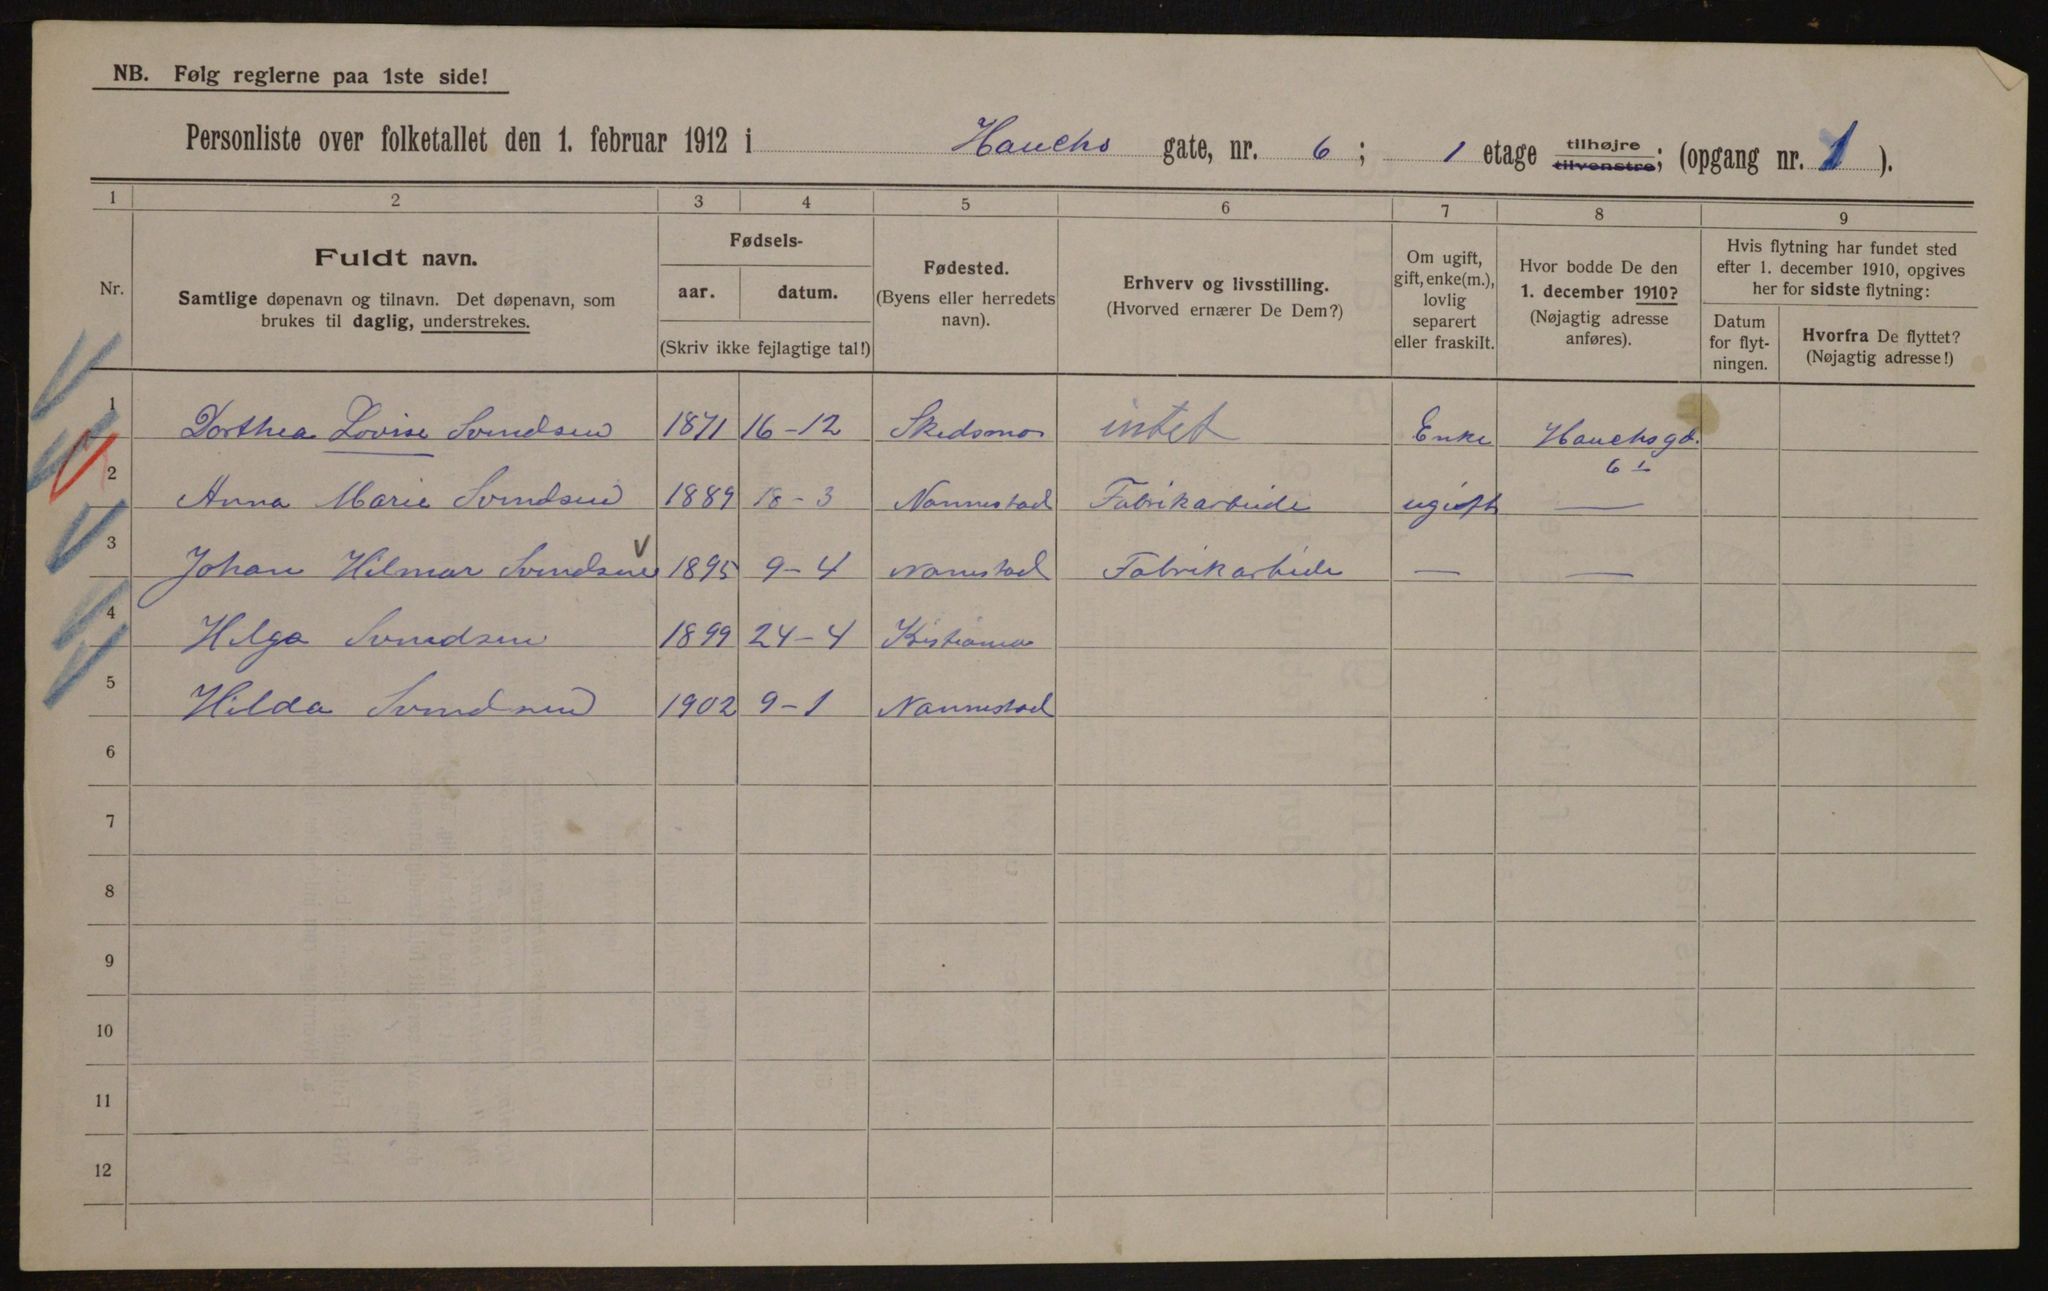 NB. Følg reglerne paa 1ste side!
Personliste over folketallet den 1. februar 1912 i Hauchs gate, nr. 6 ; 1 etage tilhøjre tilvenstre; (opgang nr. 1 ).
1 2 3 4 5 6 7 8 9
Nr.
Fuldt navn.
Samtlige døpenavn og tilnavn. Det døpenavn, som
brukes til daglig, understrekes.
Fødsels-
aar. datum.
(Skriv ikke fejlagtige tal!)
Fødested.
(Byens eller herredets
navn).
Erhverv og livsstilling.
(Hvorved ernærer De Dem?)
Om ugift,
gift, enke(m.),
lovlig
separert
eller fraskilt.
Hvor bodde De den
1. december 1910?
(Nøjagtig adresse
anføres).
Hvis flytning har fundet sted
efter 1. december 1910, opgives
her for sidste flytning:
Datum
for flyt-
ningen.
Hvorfra De flyttet?
(Nøjagtig adresse!)
1 Dorthea Lovise Svendsen 1871 16-12 Skedsmo intet Enke Hauchsgd.
6 1
2 Anna Marie Svendsen 1889 18-3 Nannestad Fabrikarbeide ugift —
3 Johan Hilmar Svendsen 1895 9-4 Nanestad Fabrikarbeide — —
4 Helga Svendsen 1899 24-4 Kristiania
5 Hilda Svendsen 1902 9-1 Nannestad
6
7
8
9
10
11
12